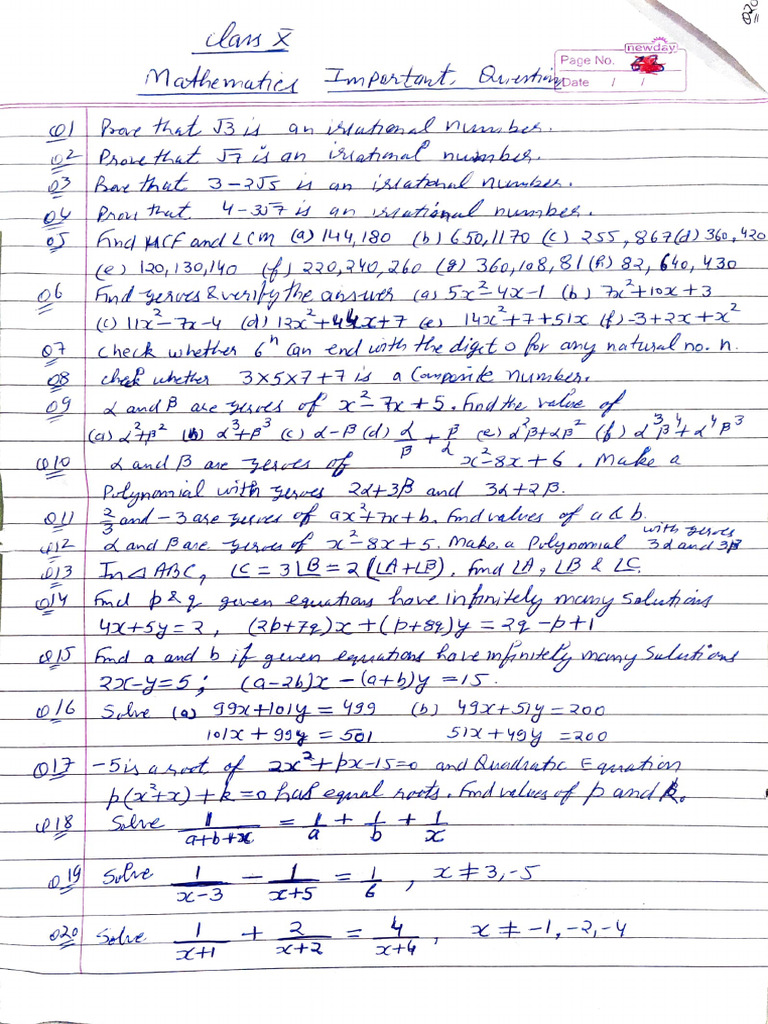 Q20
Class X
newday
Page No.
Mathematics Important Questions
Date / /
Q1 Prove that √3 is an irrational number.
Q2 Prove that √7 is an irrational number.
Q3 Prove that 3-2√5 is an irrational number.
Q4 Prove that 4-3√7 is an irrational number.
Q5 Find HCF and LCM (a) 144,180 (b) 650,1170 (c) 255,867 (d) 360,420
(e) 120,130,140 (f) 220,240,260 (g) 360,108,81 (h) 82, 640, 430
Q6 Find zeroes & verify the answer (a) 5x²-4x-1 (b) 7x²+10x+3
(c) 11x²-7x-4 (d) 12x²+44x+7 (e) 14x²+7+51x (f) -3+2x+x²
Q7 Check whether 6ⁿ can end with the digit 0 for any natural no. n.
Q8 check whether 3×5×7+7 is a Composite number.
Q9 α and β are zeroes of x²-7x+5. Find the value of
(a) α²+β² (b) α³+β³ (c) α-β (d) α/β + β/α (e) α²β+αβ² (f) α³β⁴+α⁴β³
Q10 α and β are zeroes of x²-8x+6. Make a
Polynomial with zeroes 2α+3β and 3α+2β.
Q11 2/3 and -3 are zeroes of ax²+7x+b. Find values of a & b.
Q12 α and β are zeroes of x²-8x+5. Make a Polynomial with zeroes 3α and 3β
Q13 In △ABC, ∠C = 3∠B = 2(∠A+∠B). Find ∠A, ∠B & ∠C.
Q14 Find p & q given equations have infinitely many solutions
4x+5y=2, (2p+7q)x+(p+8q)y = 2q-p+1
Q15 Find a and b if given equations have infinitely many Solutions
2x-y=5; (a-2b)x-(a+b)y=15.
Q16 Solve (a) 99x+101y=499 (b) 49x+51y=200
101x+99y=501 51x+49y=200
Q17 -5 is a root of 2x²+px-15=0 and Quadratic Equation
p(x²+x)+k=0 has equal roots. Find values of p and k.
Q18 Solve 1/(a+b+x) = 1/a + 1/b + 1/x
Q19 Solve 1/(x-3) - 1/(x+5) = 1/6, x≠3,-5
Q20 Solve 1/(x+1) + 2/(x+2) = 4/(x+4), x≠-1,-2,-4